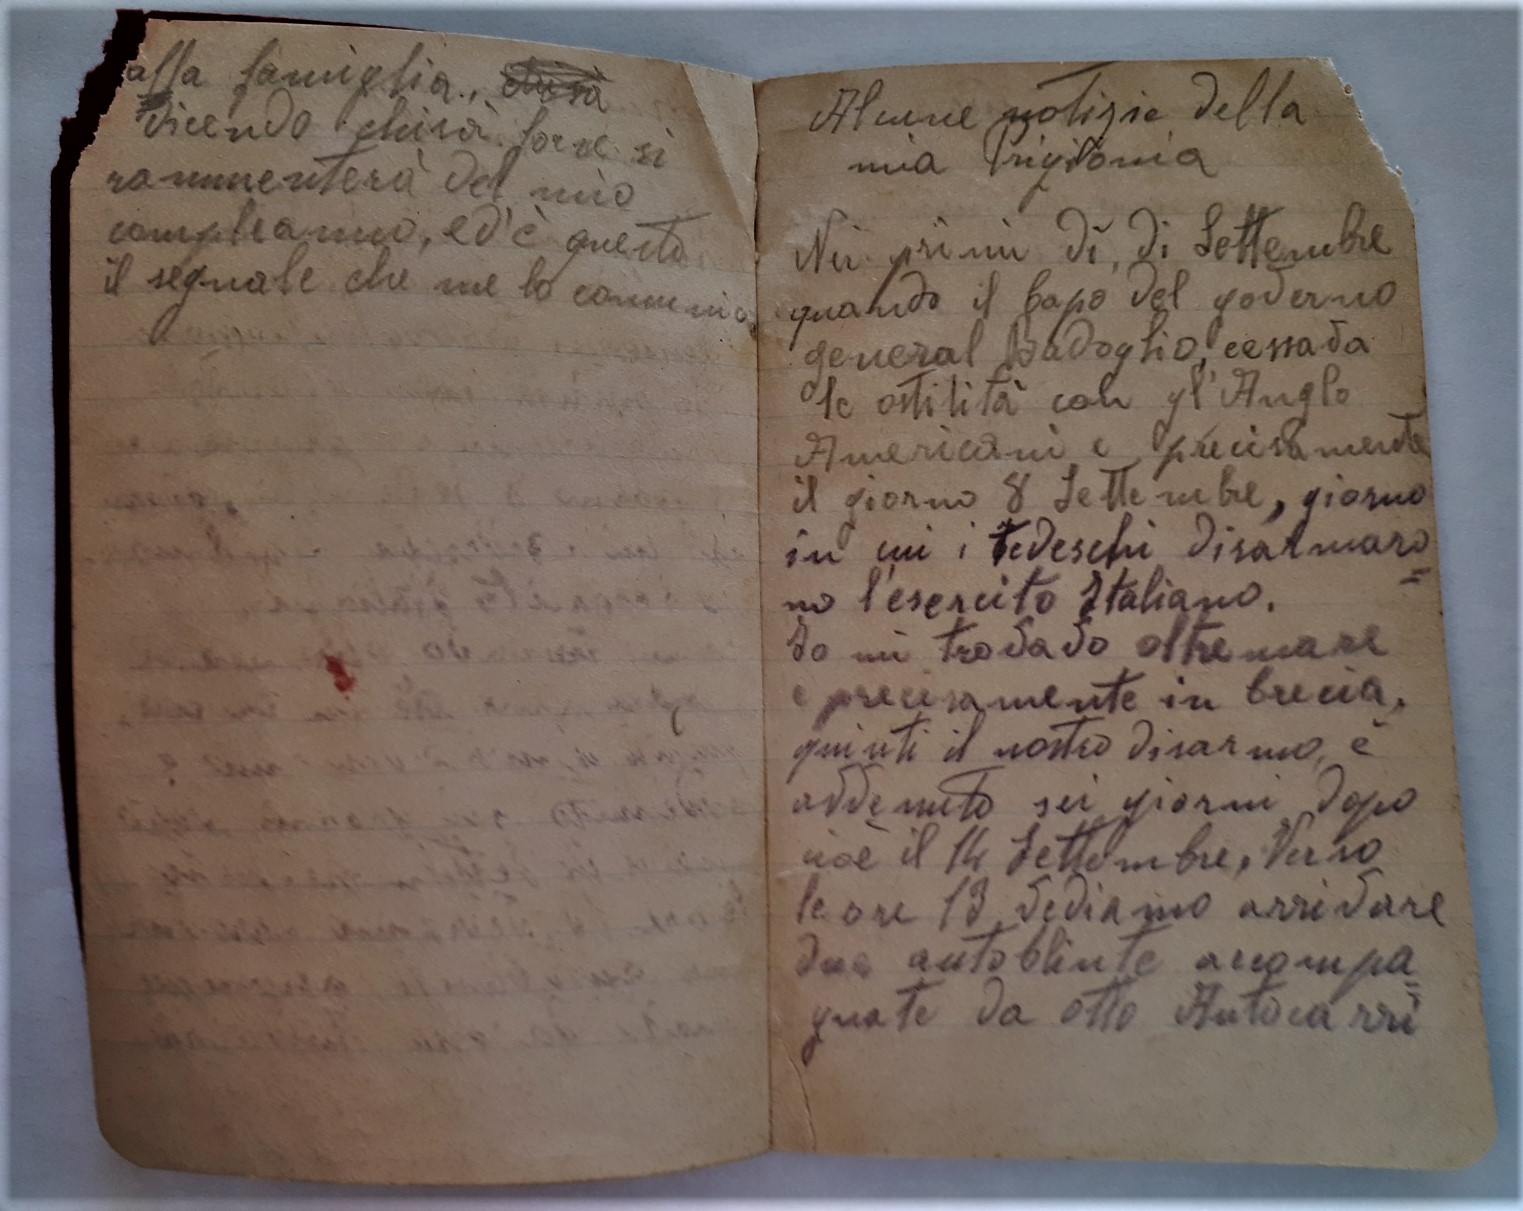 alla famiglia,
dicendo chisà forse si
rammenterà del mio
compleanno, ed'è questo
il segnale che me lo
Alcune notizie della
mia Prigionia
Nei primi dì, di Settembre
quando il Capo del governo
general Badoglio, cessava
le ostilità con gl'Anglo
Americani e precisamente
il giorno 8 Settembre, giorno
in cui i tedeschi disarmaro=
no l'esercito Italiano.
Io mi trovavo oltremare
e precisamente in Grecia,
quinti il nostro disarmo, è
avvenuto sei giorni dopo
cioè il 14 Settembre, Verso
le ore 13 vediamo arrivare
due autoblinte accompa=
gnate da otto Autocarri